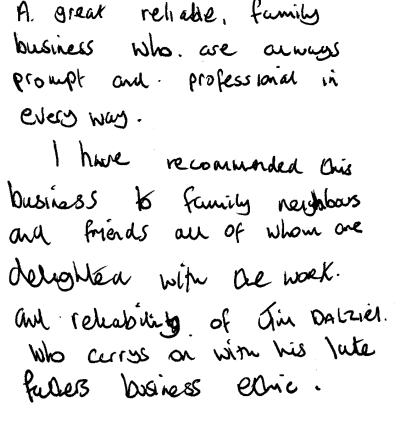 A great reliable, family
business who are always
prompt and professional in
every way.
I have recommended this
business to family neighbours
and friends all of whom are
delighted with the work.
and reliability of Jim DALZIEL.
Who carrys on with his late
fathers business ethic.